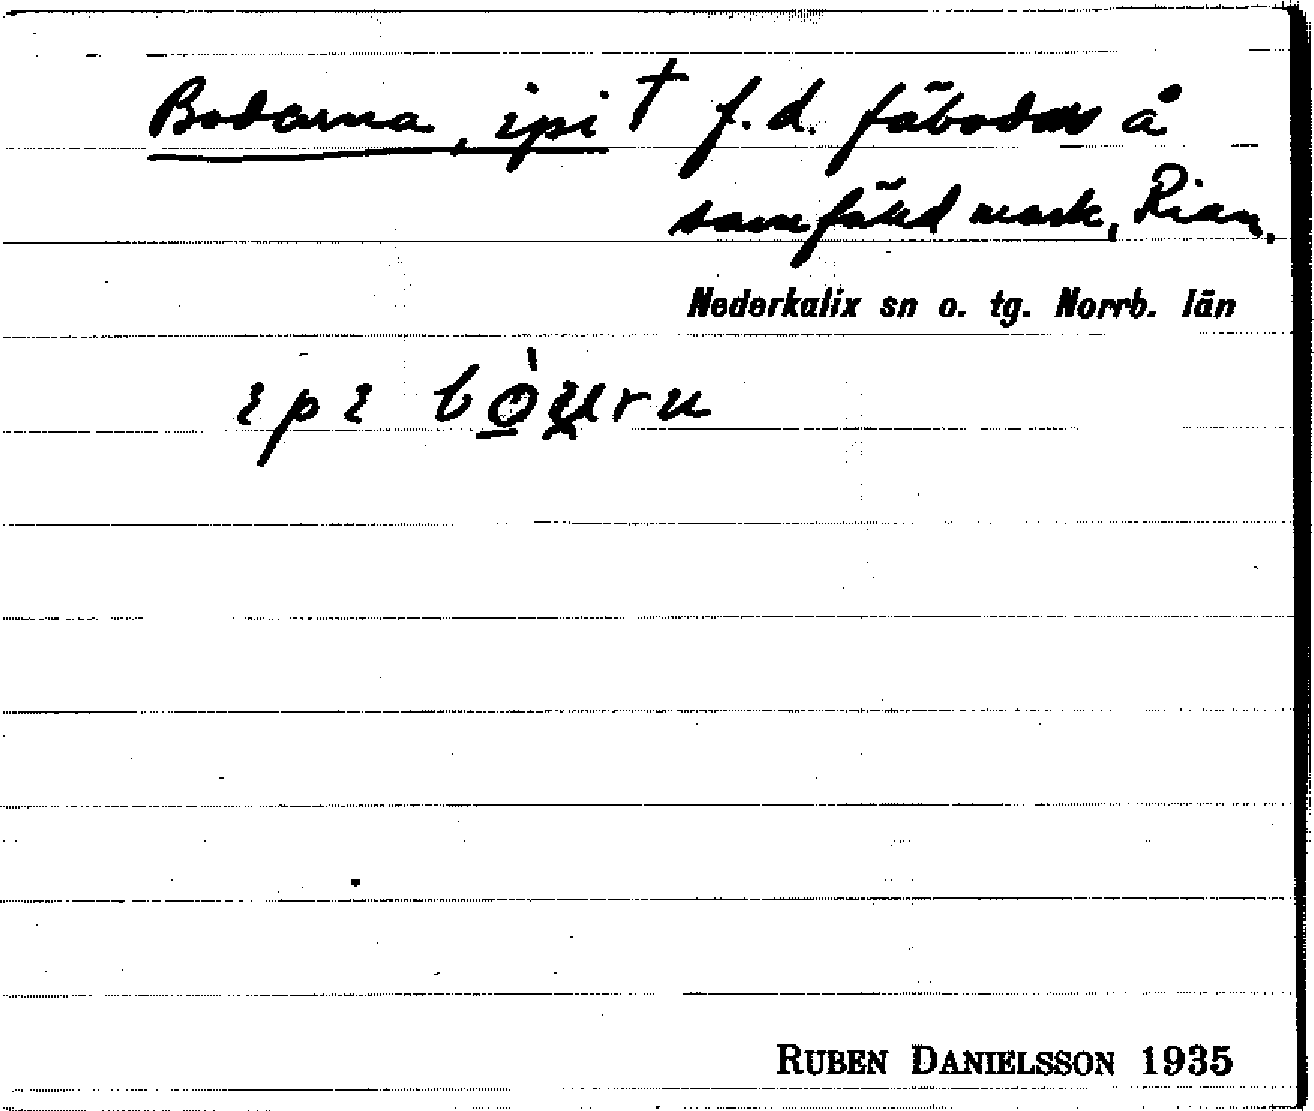 Bodarna, ipi † f.d. fäbodar å
samfälld mark, Rian.
Nederkalix sn o. tg. Norrb. län
ipi bò̲u̯ru
RUBEN DANIELSSON 1935